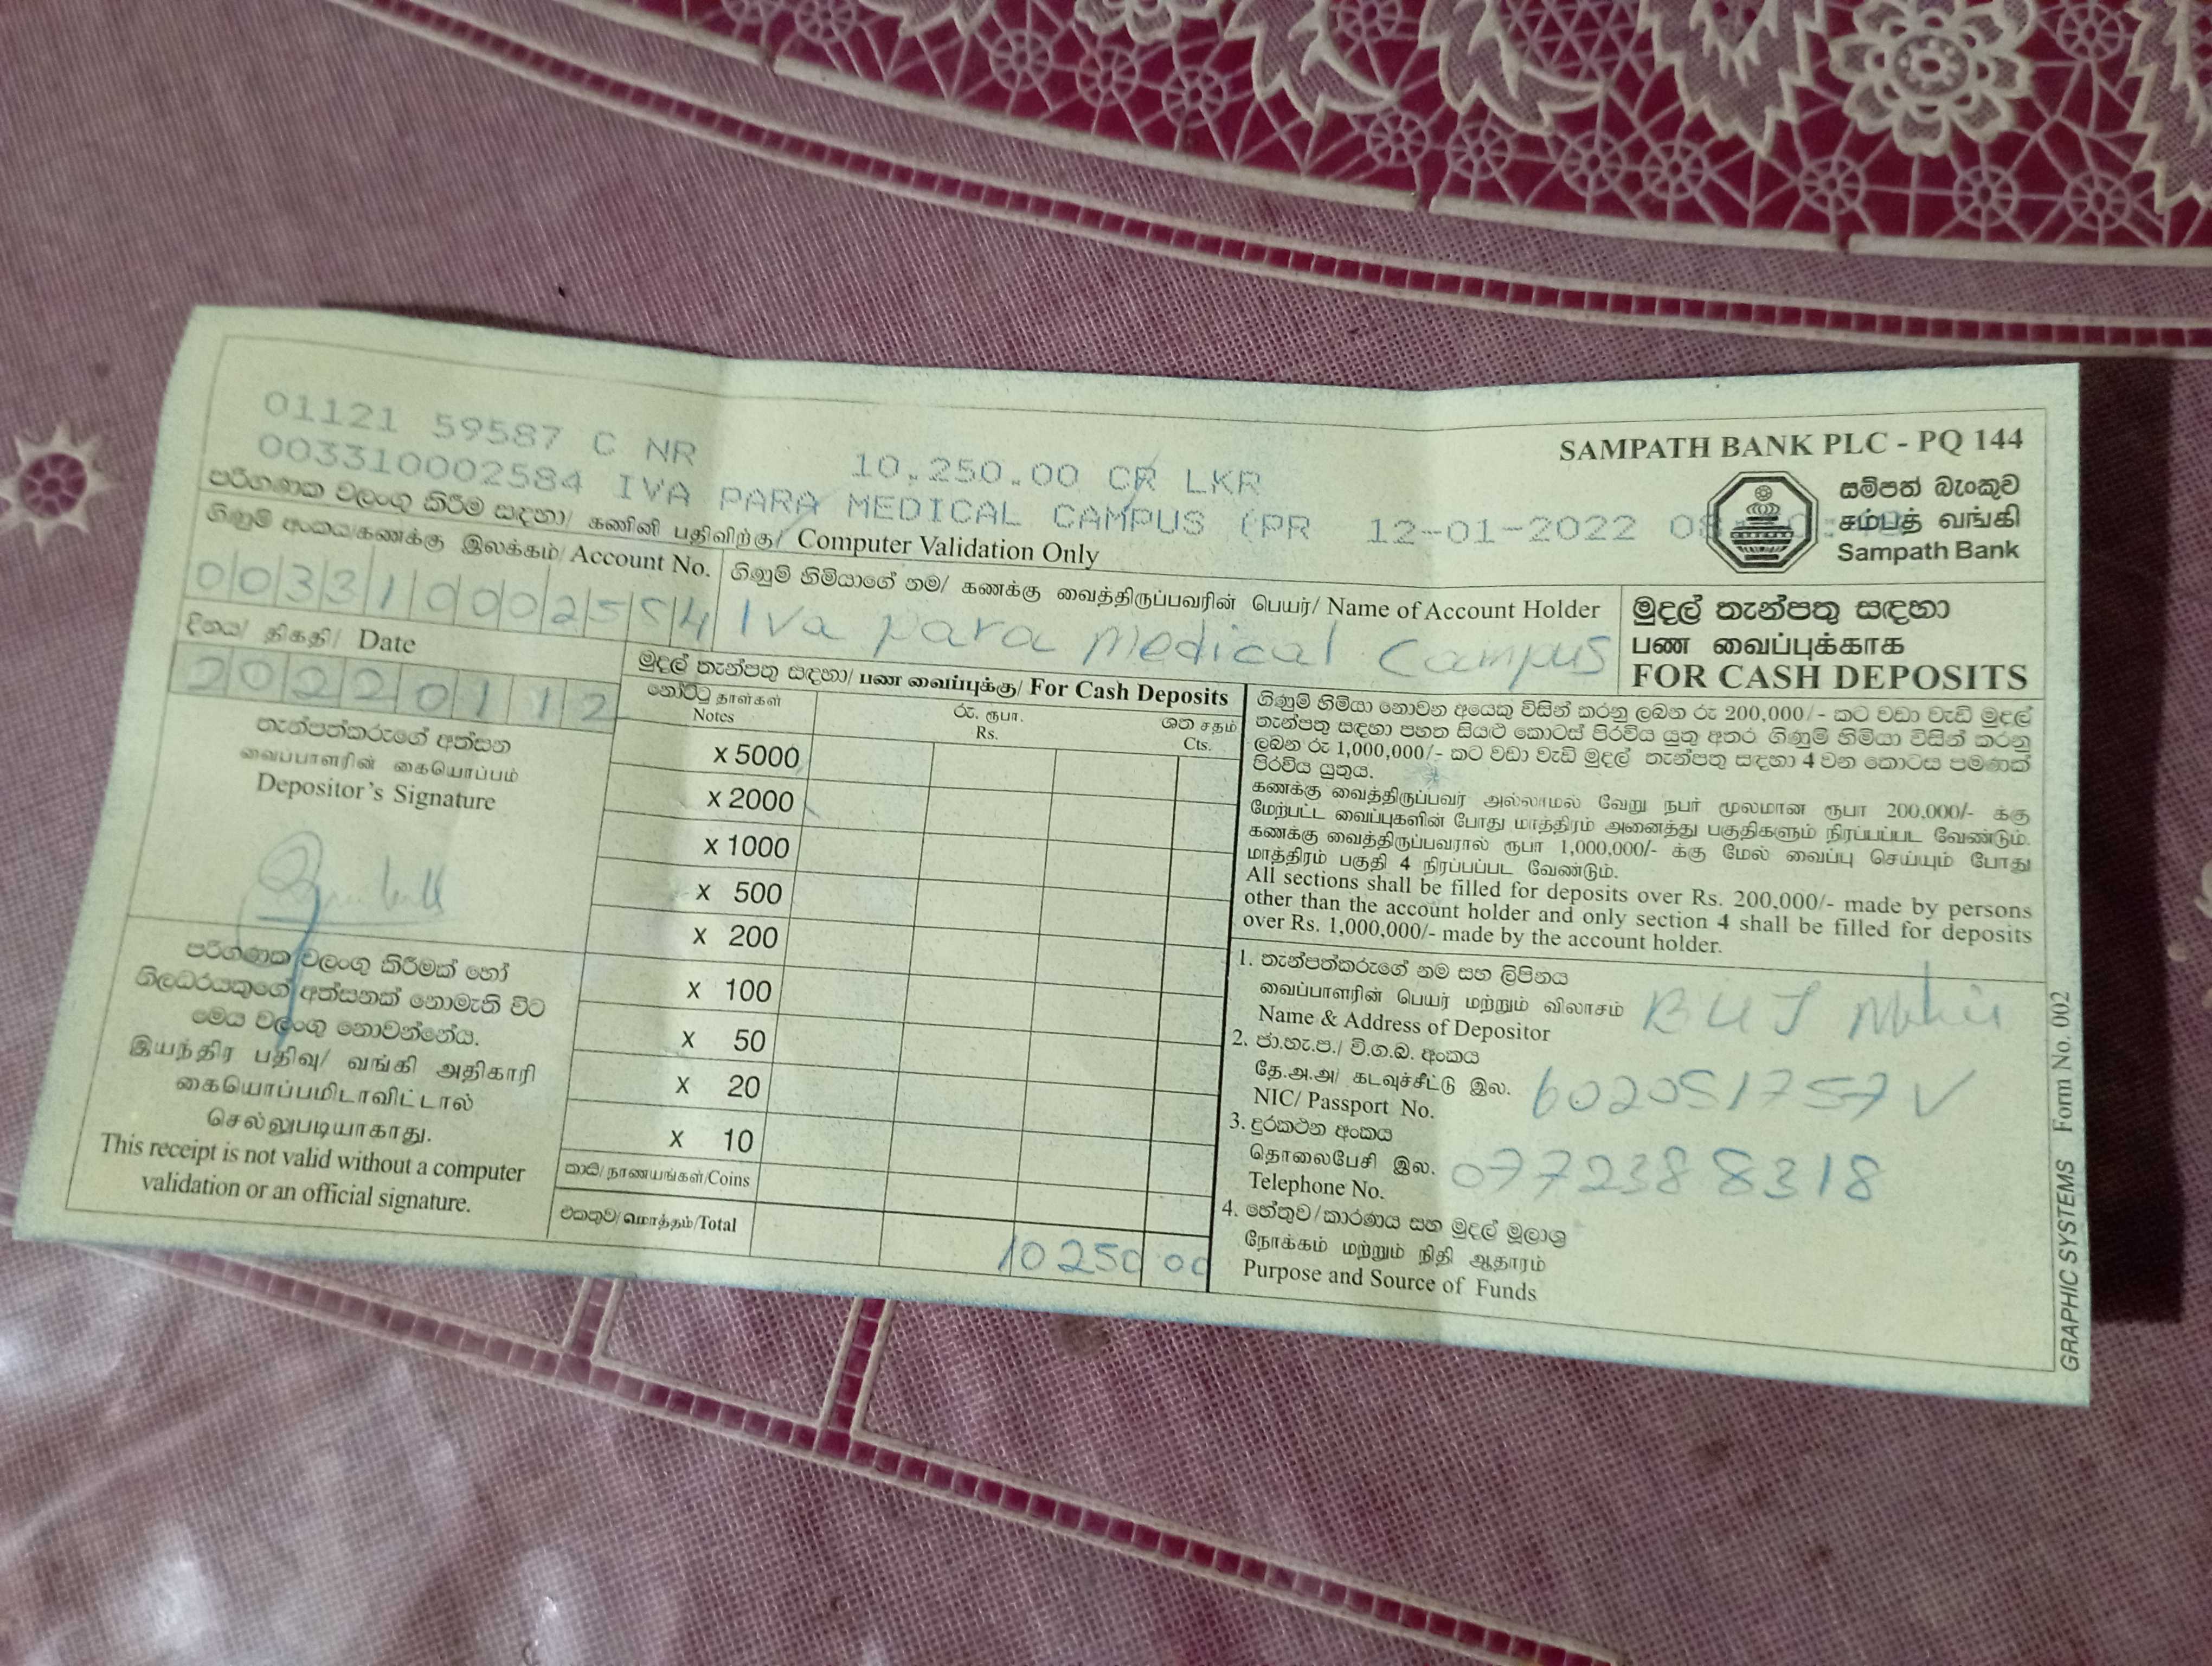 01121 59587 C NR 10,250.00 CR LKR
003310002584 IVA PARA MEDICAL CAMPUS (PR 12-01-2022
SAMPATH BANK PLC - PQ 144
සම්පත් බැංකුව
சம்பத் வங்கி
Sampath Bank
පරිගණක වලංගු කිරීම සඳහා/ கணினி பதிவிற்கு/ Computer Validation Only
ගිණුම් අංකය/கணக்கு இலக்கம்/ Account No.
003310002584
ගිණුම් හිමියාගේ නම/ கணக்கு வைத்திருப்பவரின் பெயர்/ Name of Account Holder
Iva para medical Campus
මුදල් තැන්පතු සඳහා
பண வைப்புக்காக
FOR CASH DEPOSITS
දිනය/ திகதி/ Date
20220112
තැන්පත්කරුගේ අත්සන
வைப்பாளரின் கையொப்பம்
Depositor's Signature
පරිගණක වලංගු කිරීමක් හෝ
නිලධරයකුගේ අත්සනක් නොමැති විට
මෙය වලංගු නොවන්නේය.
இயந்திர பதிவு/ வங்கி அதிகாரி
கையொப்பமிடாவிட்டால்
செல்லுபடியாகாது.
This receipt is not valid without a computer
validation or an official signature.
මුදල් තැන්පතු සඳහා/ பண வைப்புக்கு/ For Cash Deposits
නෝට්ටු தாள்கள்
Notes
රු. ரூபா.
Rs.
ශත சதம்
Cts.
x 5000
x 2000
x 1000
x 500
x 200
x 100
x 50
x 20
x 10
කාසි/நாணயங்கள்/Coins
එකතුව/மொத்தம்/Total
10250 00
ගිණුම් හිමියා නොවන අයෙකු විසින් කරනු ලබන රු 200,000/- කට වඩා වැඩි මුදල්
තැන්පතු සඳහා පහත සියළු කොටස් පිරවිය යුතු අතර ගිණුම් හිමියා විසින් කරනු
ලබන රු 1,000,000/- කට වඩා වැඩි මුදල් තැන්පතු සඳහා 4 වන කොටස පමණක්
පිරවිය යුතුය.
கணக்கு வைத்திருப்பவர் அல்லாமல் வேறு நபர் மூலமான ரூபா 200,000/- க்கு
மேற்பட்ட வைப்புகளின் போது மாத்திரம் அனைத்து பகுதிகளும் நிரப்பப்பட வேண்டும்.
கணக்கு வைத்திருப்பவரால் ரூபா 1,000,000/- க்கு மேல் வைப்பு செய்யும் போது
மாத்திரம் பகுதி 4 நிரப்பப்பட வேண்டும்.
All sections shall be filled for deposits over Rs. 200,000/- made by persons
other than the account holder and only section 4 shall be filled for deposits
over Rs. 1,000,000/- made by the account holder.
1. තැන්පත්කරුගේ නම සහ ලිපිනය
வைப்பாளரின் பெயர் மற்றும் விலாசம்
Name & Address of Depositor
2. ජා.හැ.ප./ වි.ග.බ. අංකය
தே.அ.அ/ கடவுச்சீட்டு இல.
NIC/ Passport No.
602051757V
3. දුරකථන අංකය
தொலைபேசி இல.
Telephone No.
0772388318
4. හේතුව/කාරණය සහ මුදල් මූලාශ්‍ර
நோக்கம் மற்றும் நிதி ஆதாரம்
Purpose and Source of Funds
GRAPHIC SYSTEMS Form No. 002